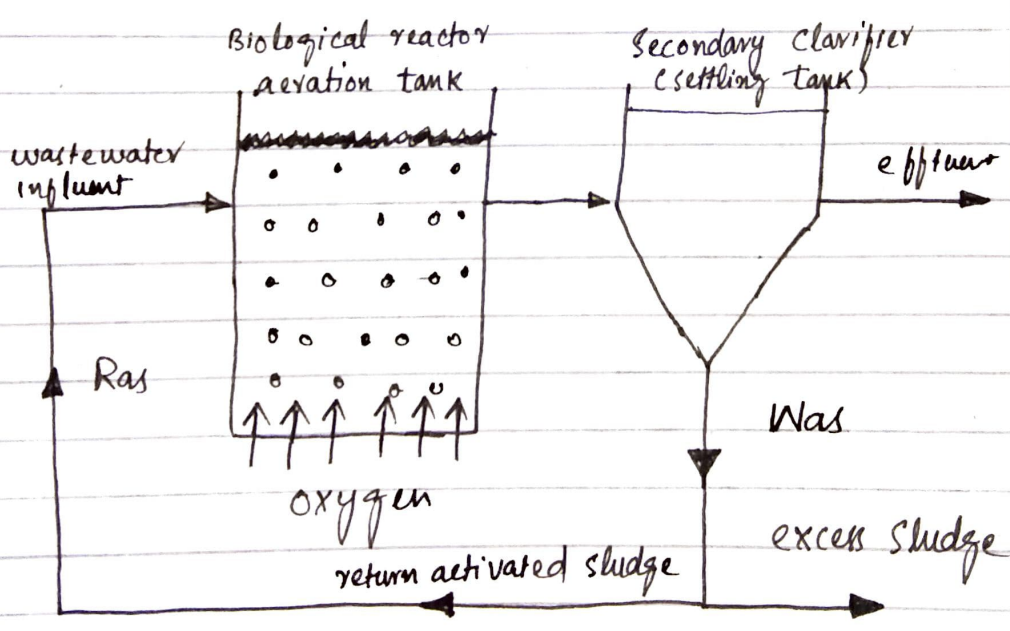 Biological reactor
aeration tank
Secondary Clarifier
(settling tank)
wastewater
influent
effluent
Ras
Was
oxygen
excess sludge
return activated sludge